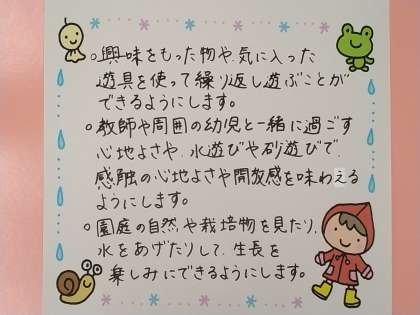 ○興味をもった物や、気に入った
遊具を使って繰り返し遊ぶことが
できるようにします。
○教師や周囲の幼児と一緒に過ごす
心地よさや、水遊びや砂遊びで、
感触の心地よさや開放感を味わえる
ようにします。
○園庭の自然や栽培物を見たり、
水をあげたりして、生長を
楽しみにできるようにします。